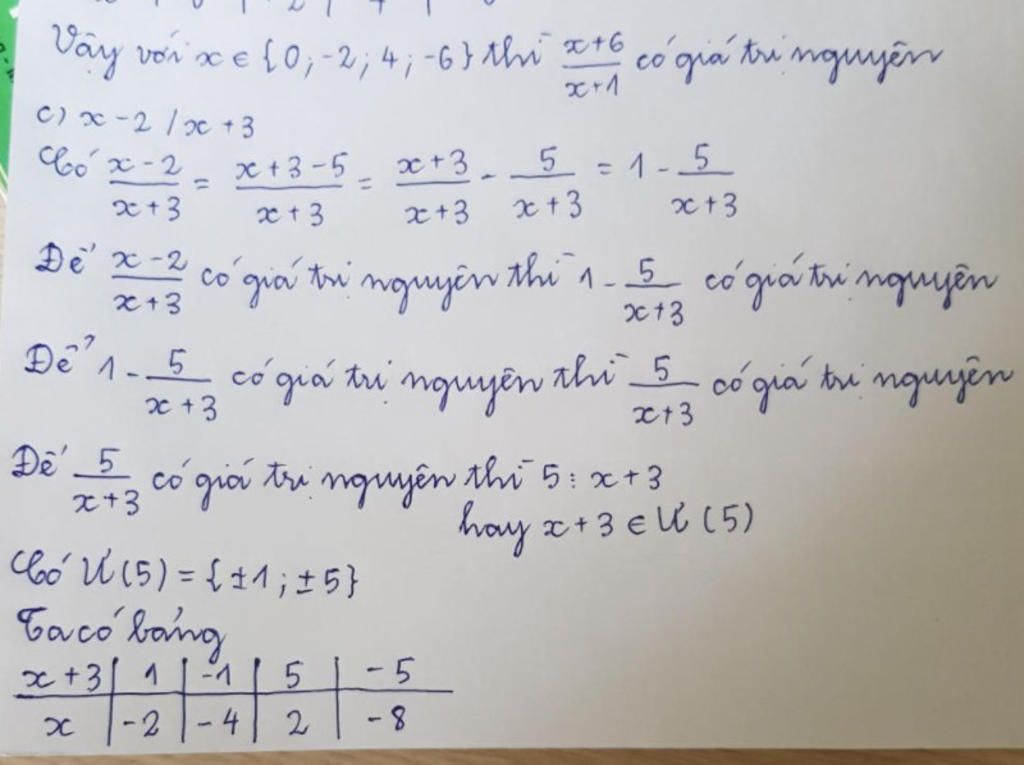 Vậy với x ∈ {0; -2; 4; -6} thì \frac{x+6}{x+1} có giá trị nguyên
c) x - 2 / x + 3
Có \frac{x-2}{x+3} = \frac{x+3-5}{x+3} = \frac{x+3}{x+3} - \frac{5}{x+3} = 1 - \frac{5}{x+3}
Để \frac{x-2}{x+3} có giá trị nguyên thì 1 - \frac{5}{x+3} có giá trị nguyên
Để 1 - \frac{5}{x+3} có giá trị nguyên thì \frac{5}{x+3} có giá trị nguyên
Để \frac{5}{x+3} có giá trị nguyên thì 5 ⋮ x + 3
hay x + 3 ∈ Ư (5)
Có Ư(5) = {±1; ±5}
Ta có bảng
x + 3 | 1 | -1 | 5 | -5
x | -2 | -4 | 2 | -8